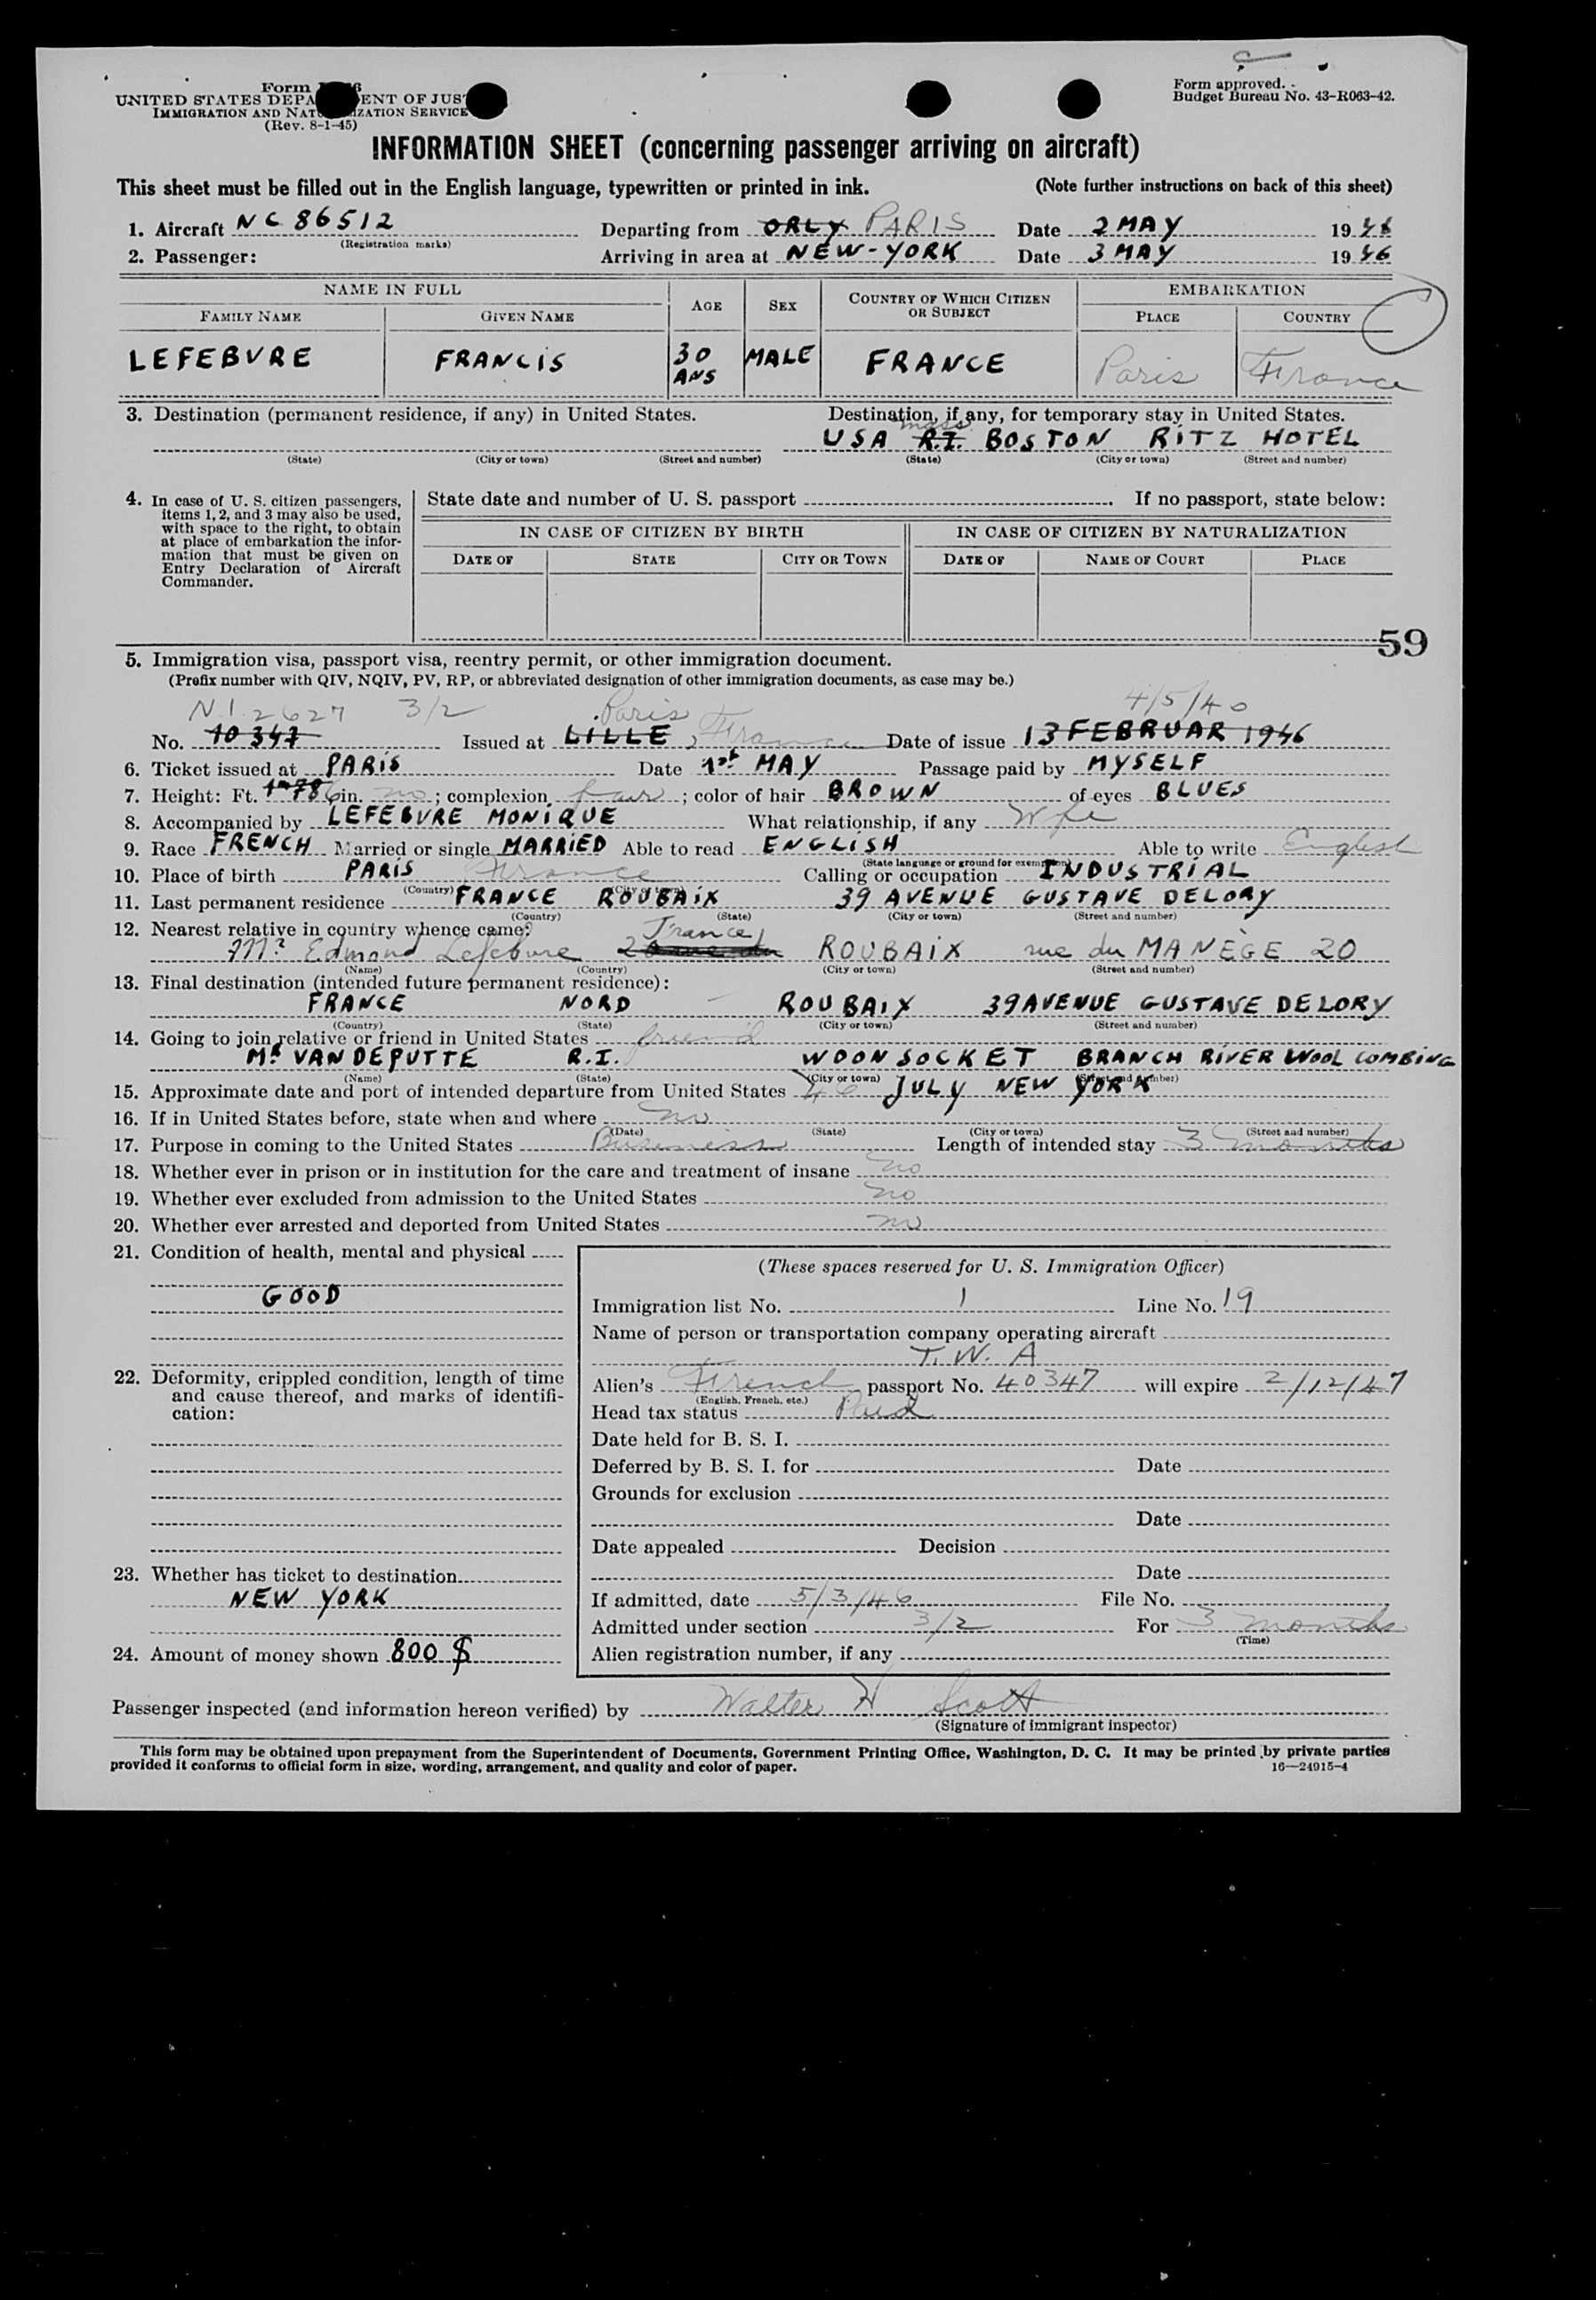 Form
UNITED STATES DEPA ENT OF JUS
IMMIGRATION AND NAT IZATION SERVICE
(Rev. 8-1-45)
Form approved.
Budget Bureau No. 43-R063-42.
INFORMATION SHEET (concerning passenger arriving on aircraft)
This sheet must be filled out in the English language, typewritten or printed in ink. (Note further instructions on back of this sheet)
1. Aircraft NC 86512 Departing from ORLY PARIS Date 2 MAY 1946
(Registration marks)
2. Passenger: Arriving in area at NEW-YORK Date 3 MAY 1946
NAME IN FULL AGE SEX COUNTRY OF WHICH CITIZEN OR SUBJECT EMBARKATION
FAMILY NAME GIVEN NAME PLACE COUNTRY
LEFEBVRE FRANCIS 30 ANS MALE FRANCE Paris France
3. Destination (permanent residence, if any) in United States. Destination, if any, for temporary stay in United States.
mass
USA R.I. BOSTON RITZ HOTEL
(State) (City or town) (Street and number) (State) (City or town) (Street and number)
4. In case of U. S. citizen passengers, items 1, 2, and 3 may also be used, with space to the right, to obtain at place of embarkation the information that must be given on Entry Declaration of Aircraft Commander.
State date and number of U. S. passport . If no passport, state below:
IN CASE OF CITIZEN BY BIRTH IN CASE OF CITIZEN BY NATURALIZATION
DATE OF STATE CITY OR TOWN DATE OF NAME OF COURT PLACE
59
5. Immigration visa, passport visa, reentry permit, or other immigration document.
(Prefix number with QIV, NQIV, PV, RP, or abbreviated designation of other immigration documents, as case may be.)
N.I. 2627 3/2 Paris 4/5/40
No. 40347 Issued at LILLE, France Date of issue 13 FEBRUAR 1946
6. Ticket issued at PARIS Date 1st MAY Passage paid by MYSELF
7. Height: Ft. in. no; complexion fair; color of hair BROWN of eyes BLUES
8. Accompanied by LEFEBVRE MONIQUE What relationship, if any Wife
9. Race FRENCH Married or single MARRIED Able to read ENGLISH Able to write English
(State language or ground for exemption)
10. Place of birth PARIS France Calling or occupation INDUSTRIAL
(Country) (City or town)
11. Last permanent residence FRANCE ROUBAIX 39 AVENUE GUSTAVE DELORY
(Country) (State) (City or town) (Street and number)
12. Nearest relative in country whence came:
Mr Edmond Lefebvre France ROUBAIX rue du MANÈGE 20
(Name) (Country) (City or town) (Street and number)
13. Final destination (intended future permanent residence):
FRANCE NORD - ROUBAIX 39 AVENUE GUSTAVE DELORY
(Country) (State) (City or town) (Street and number)
14. Going to join relative or friend in United States friend
Mr VANDEPUTTE R.I. WOONSOCKET BRANCH RIVER WOOL COMBING
(Name) (State) (City or town) (Street and number)
15. Approximate date and port of intended departure from United States 46 JULY NEW YORK
16. If in United States before, state when and where no
(Date) (State) (City or town) (Street and number)
17. Purpose in coming to the United States Business Length of intended stay 3 months
18. Whether ever in prison or in institution for the care and treatment of insane no
19. Whether ever excluded from admission to the United States no
20. Whether ever arrested and deported from United States no
21. Condition of health, mental and physical
GOOD
22. Deformity, crippled condition, length of time and cause thereof, and marks of identification:
23. Whether has ticket to destination
NEW YORK
24. Amount of money shown 800 $
(These spaces reserved for U. S. Immigration Officer)
Immigration list No. 1 Line No. 19
Name of person or transportation company operating aircraft
T. W. A
Alien's French passport No. 40347 will expire 2/12/47
(English, French, etc.)
Head tax status Paid
Date held for B. S. I.
Deferred by B. S. I. for Date
Grounds for exclusion
Date
Date appealed Decision
Date
If admitted, date 5/3/46 File No.
Admitted under section 3/2 For 3 months
(Time)
Alien registration number, if any
Passenger inspected (and information hereon verified) by Walter W Scott
(Signature of immigrant inspector)
This form may be obtained upon prepayment from the Superintendent of Documents, Government Printing Office, Washington, D. C. It may be printed by private parties
provided it conforms to official form in size, wording, arrangement, and quality and color of paper. 16—24915-4